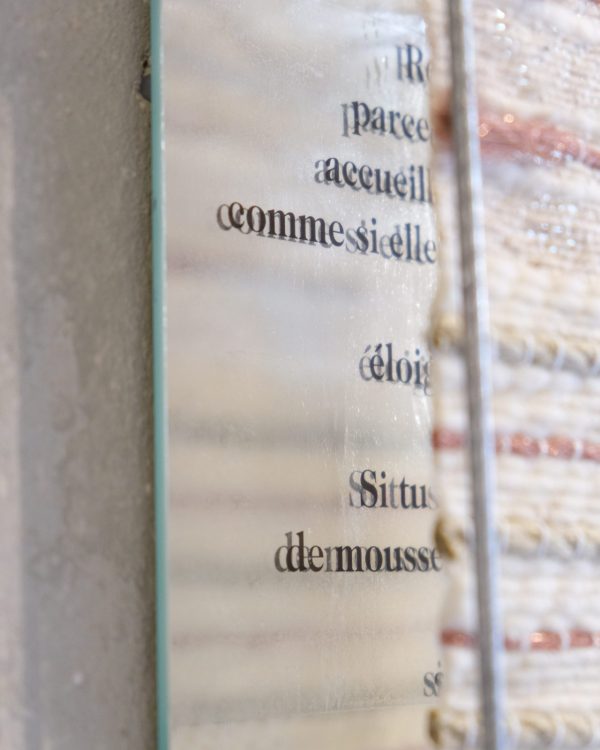 R
parce
accueill
comme si elle
éloig
Si tu s
de mousse
s